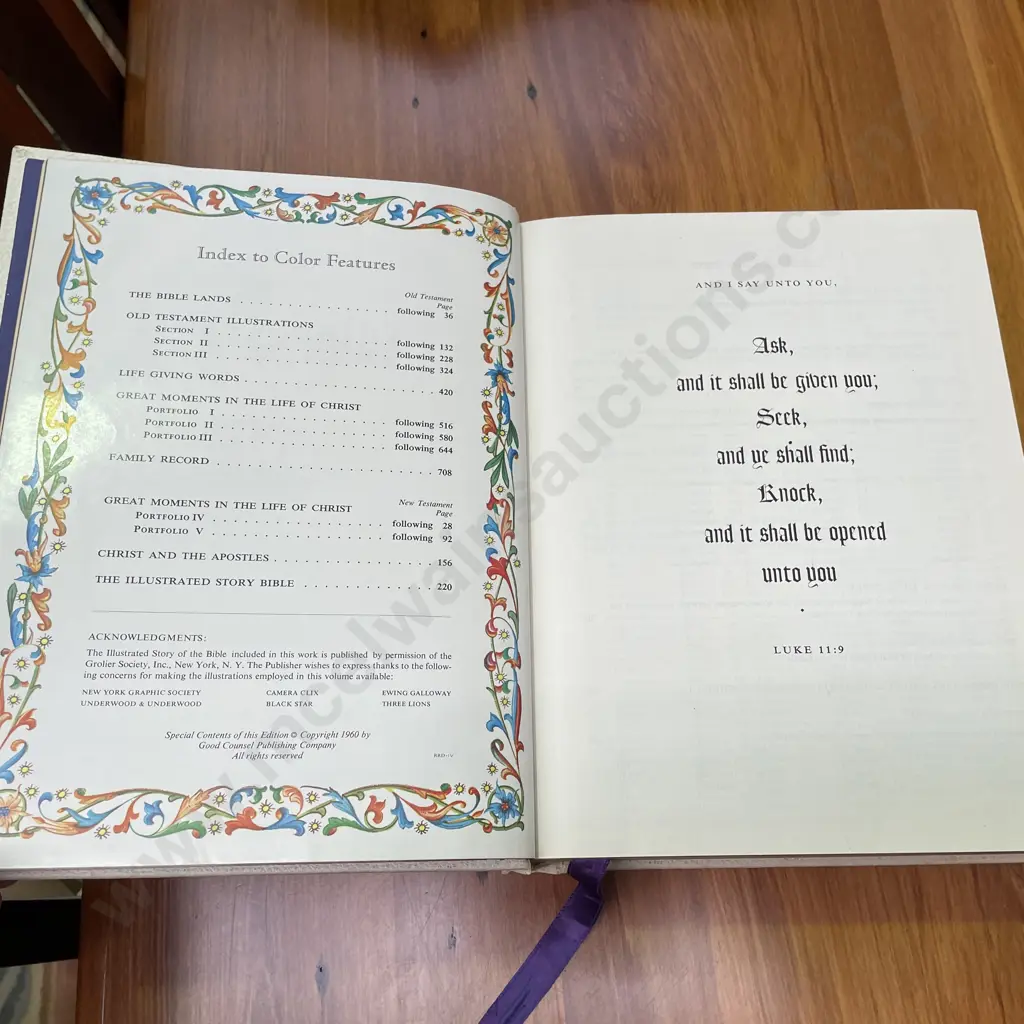 Index to Color Features
Old Testament
Page
THE BIBLE LANDS . . . . . . . . . . . . . . . . following 36
OLD TESTAMENT ILLUSTRATIONS
SECTION I . . . . . . . . . . . . . . . . following 132
SECTION II . . . . . . . . . . . . . . . . following 228
SECTION III . . . . . . . . . . . . . . . . following 324
LIFE GIVING WORDS . . . . . . . . . . . . . . . . 420
GREAT MOMENTS IN THE LIFE OF CHRIST
PORTFOLIO I . . . . . . . . . . . . . . . . following 516
PORTFOLIO II . . . . . . . . . . . . . . . . following 580
PORTFOLIO III . . . . . . . . . . . . . . . . following 644
FAMILY RECORD . . . . . . . . . . . . . . . . 708
New Testament
Page
GREAT MOMENTS IN THE LIFE OF CHRIST
PORTFOLIO IV . . . . . . . . . . . . . . . . following 28
PORTFOLIO V . . . . . . . . . . . . . . . . following 92
CHRIST AND THE APOSTLES . . . . . . . . . . . . . . . . 156
THE ILLUSTRATED STORY BIBLE . . . . . . . . . . . . . 220
ACKNOWLEDGMENTS:
The Illustrated Story of the Bible included in this work is published by permission of the
Grolier Society, Inc., New York, N. Y. The Publisher wishes to express thanks to the follow-
ing concerns for making the illustrations employed in this volume available:
NEW YORK GRAPHIC SOCIETY CAMERA CLIX EWING GALLOWAY
UNDERWOOD & UNDERWOOD BLACK STAR THREE LIONS
Special Contents of this Edition © Copyright 1960 by
Good Counsel Publishing Company
All rights reserved
AND I SAY UNTO YOU,
Ask,
and it shall be given you;
Seek,
and ye shall find;
Knock,
and it shall be opened
unto you
LUKE 11:9